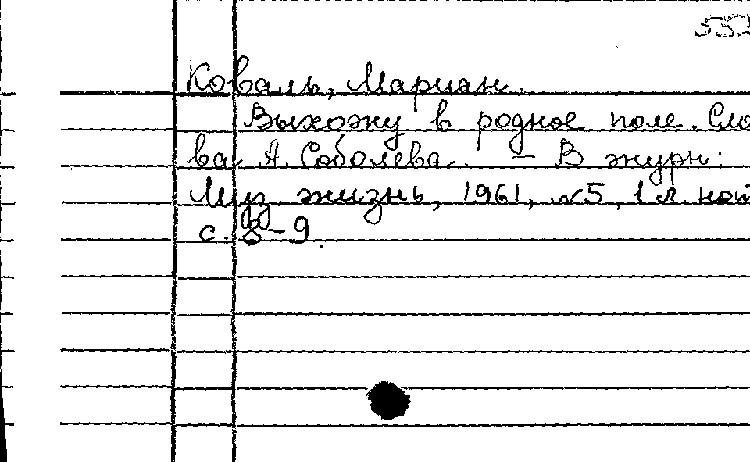 Коваль, Мариан.
Выхожу в родное поле. Сло
ва А. Соболева. – В журн:
Муз. жизнь, 1961, №5, 1 л. ной
с. 8-9.